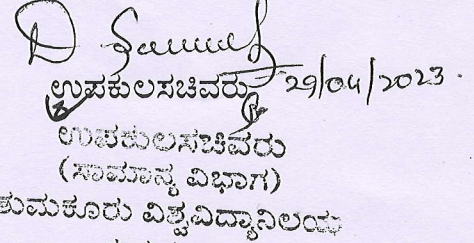 ಉಪಕುಲಸಚಿವರು 29/04/2023
ಉಪಕುಲಸಚಿವರು
(ಸಾಮಾನ್ಯ ವಿಭಾಗ)
ತುಮಕೂರು ವಿಶ್ವವಿದ್ಯಾನಿಲಯ